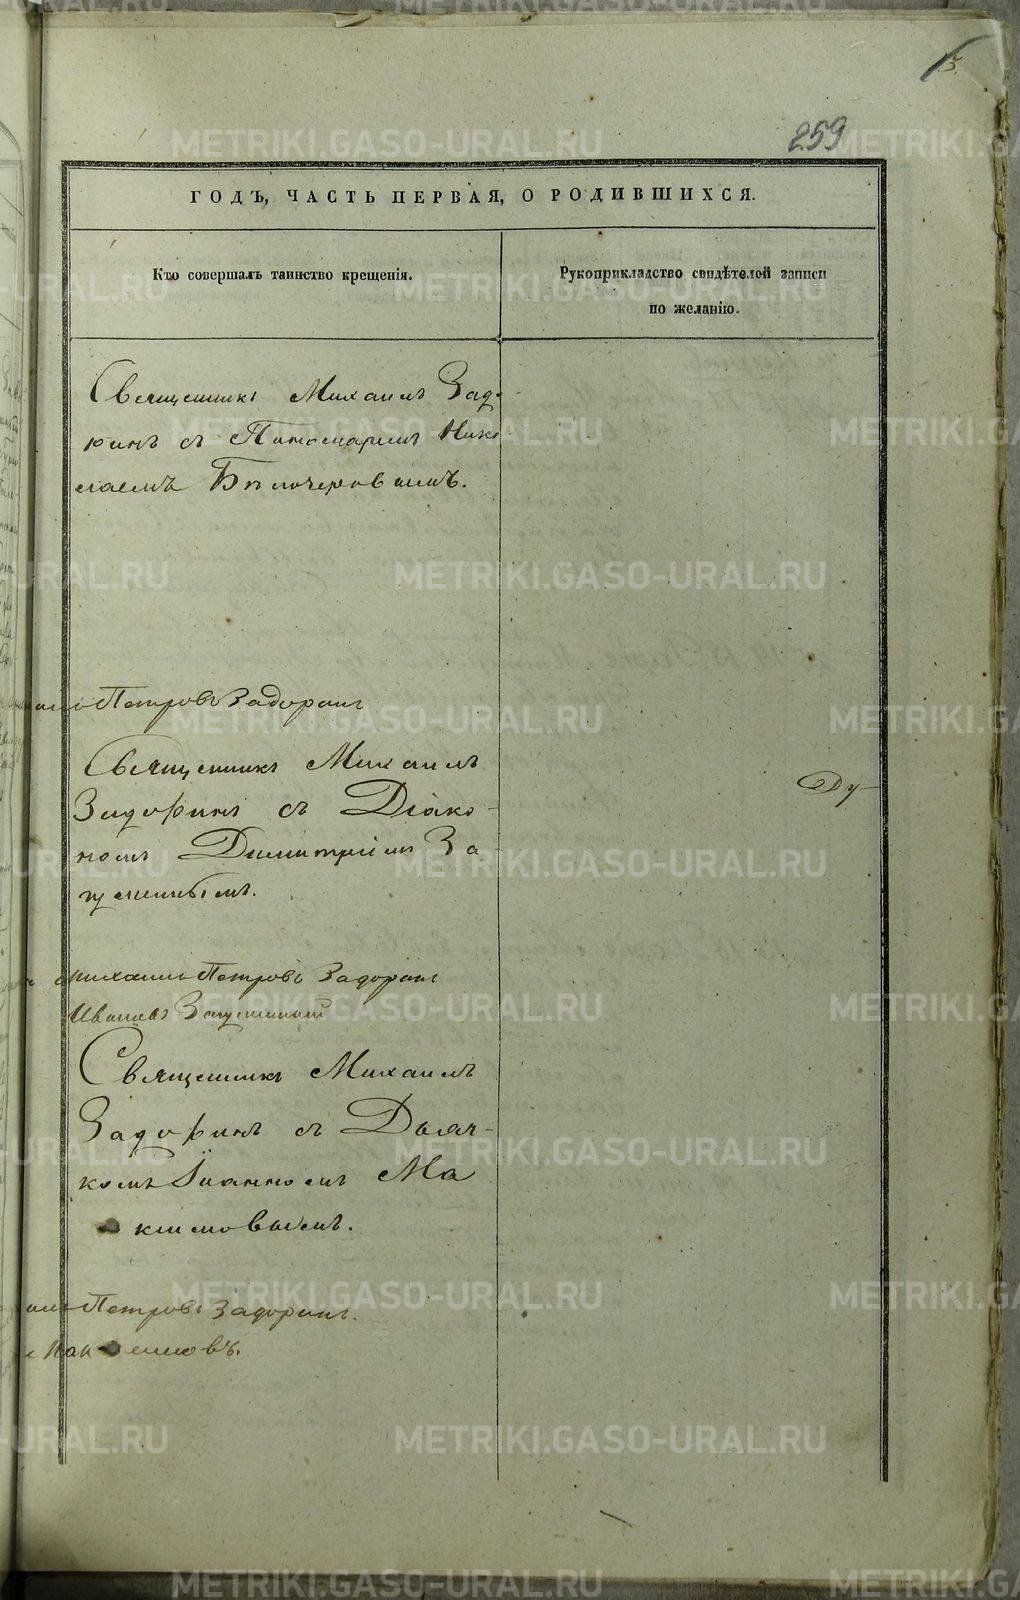 15.
259
ГОДЪ, ЧАСТЬ ПЕРВАЯ, О РОДИВШИХСЯ.
Кто совершалъ таинство крещенія.
Рукоприкладство свидѣтелей записи
по желанію.
Священникъ Михаилъ Задо-
ринъ съ Пономаремъ Нико
лаемъ
Петровъ Задоринъ
Священникъ Михаилъ
Задоринъ съ Діако-
номъ Димитріемъ За
Ду-
Михаилъ Петровъ Задоринъ
Ивановъ
Священникъ Михаилъ
Задоринъ съ Дьяч-
комъ Іоанномъ Ма
ксимовымъ.
Петровъ Задоринъ.
METRIKI.GASO-URAL.RU